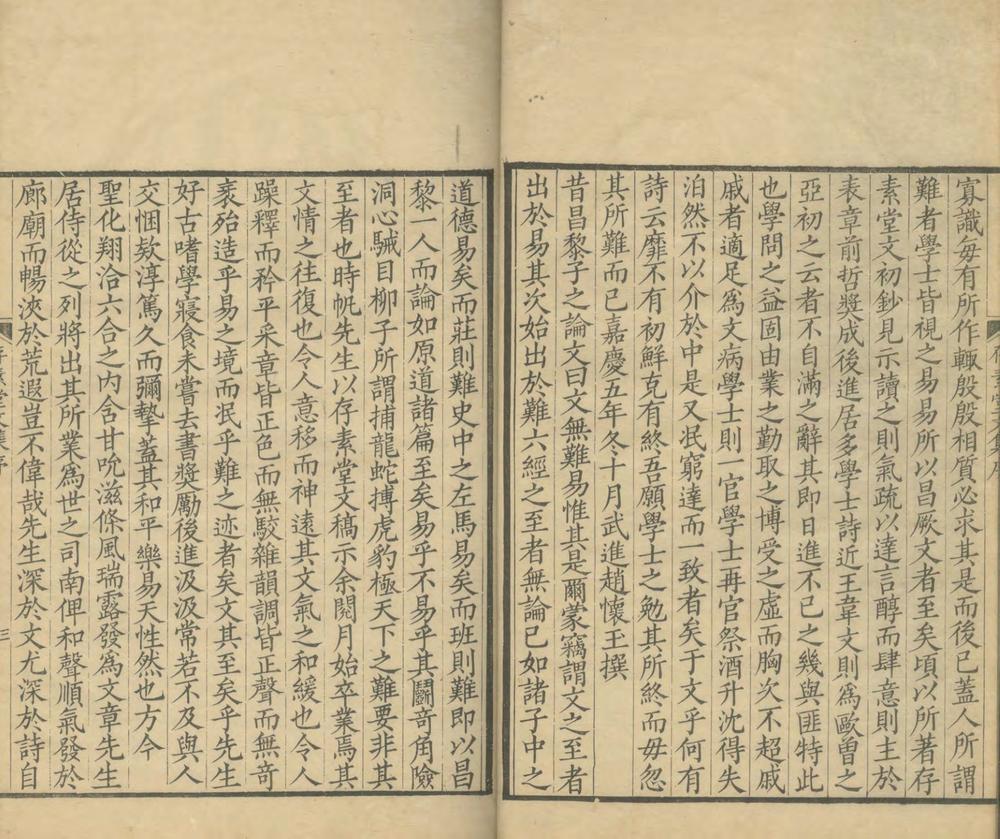 寡識每有所作輙殷殷相質必求其是而後已蓋人所謂
難者學士皆視之易易所以昌厥文者至矣頃以所著存
素堂文初鈔見示讀之則氣疏以達言醇而肆意則主於
表章前哲獎成後進居多學士詩近王韋文則爲歐曾之
亞初之云者不自滿之辭其即日進不已之幾與匪特此
也學問之益固由業之勤取之博受之虛而胸次不超戚
戚者適足爲文病學士則一官學士再官祭酒升沈得失
泊然不以介於中是又泯窮達而一致者矣于文乎何有
詩云靡不有初鮮克有終吾願學士之勉其所終而毋忽
其所難而已嘉慶五年冬十月武進趙懷玉撰
昔昌黎子之論文曰文無難易惟其是爾蒙竊謂文之至者
出於易其次始出於難六經之至者無論已如諸子中之
道德易矣而莊則難史中之左馬易矣而班則難即以昌
黎一人而論如原道諸篇至矣易乎不易乎其鬭奇角險
洞心駴目柳子所謂捕龍蛇搏虎豹極天下之難要非其
至者也時帆先生以存素堂文稿示余閱月始卒業焉其
文情之往復也令人意移而神遠其文氣之和緩也令人
躁釋而矜平采章皆正色而無駁雜韻調皆正聲而無奇
衺殆造乎易之境而泯乎難之迹者矣文其至矣乎先生
好古嗜學寢食未嘗去書獎勵後進汲汲常若不及與人
交悃欵淳篤久而彌摯蓋其和平樂易天性然也方今
聖化翔洽六合之內含甘吮滋條風瑞露發爲文章先生
居侍從之列將出其所業爲世之司南俾和聲順氣發於
廊廟而暢浹於荒遐豈不偉哉先生深於文尤深於詩自
存素堂文集序
三